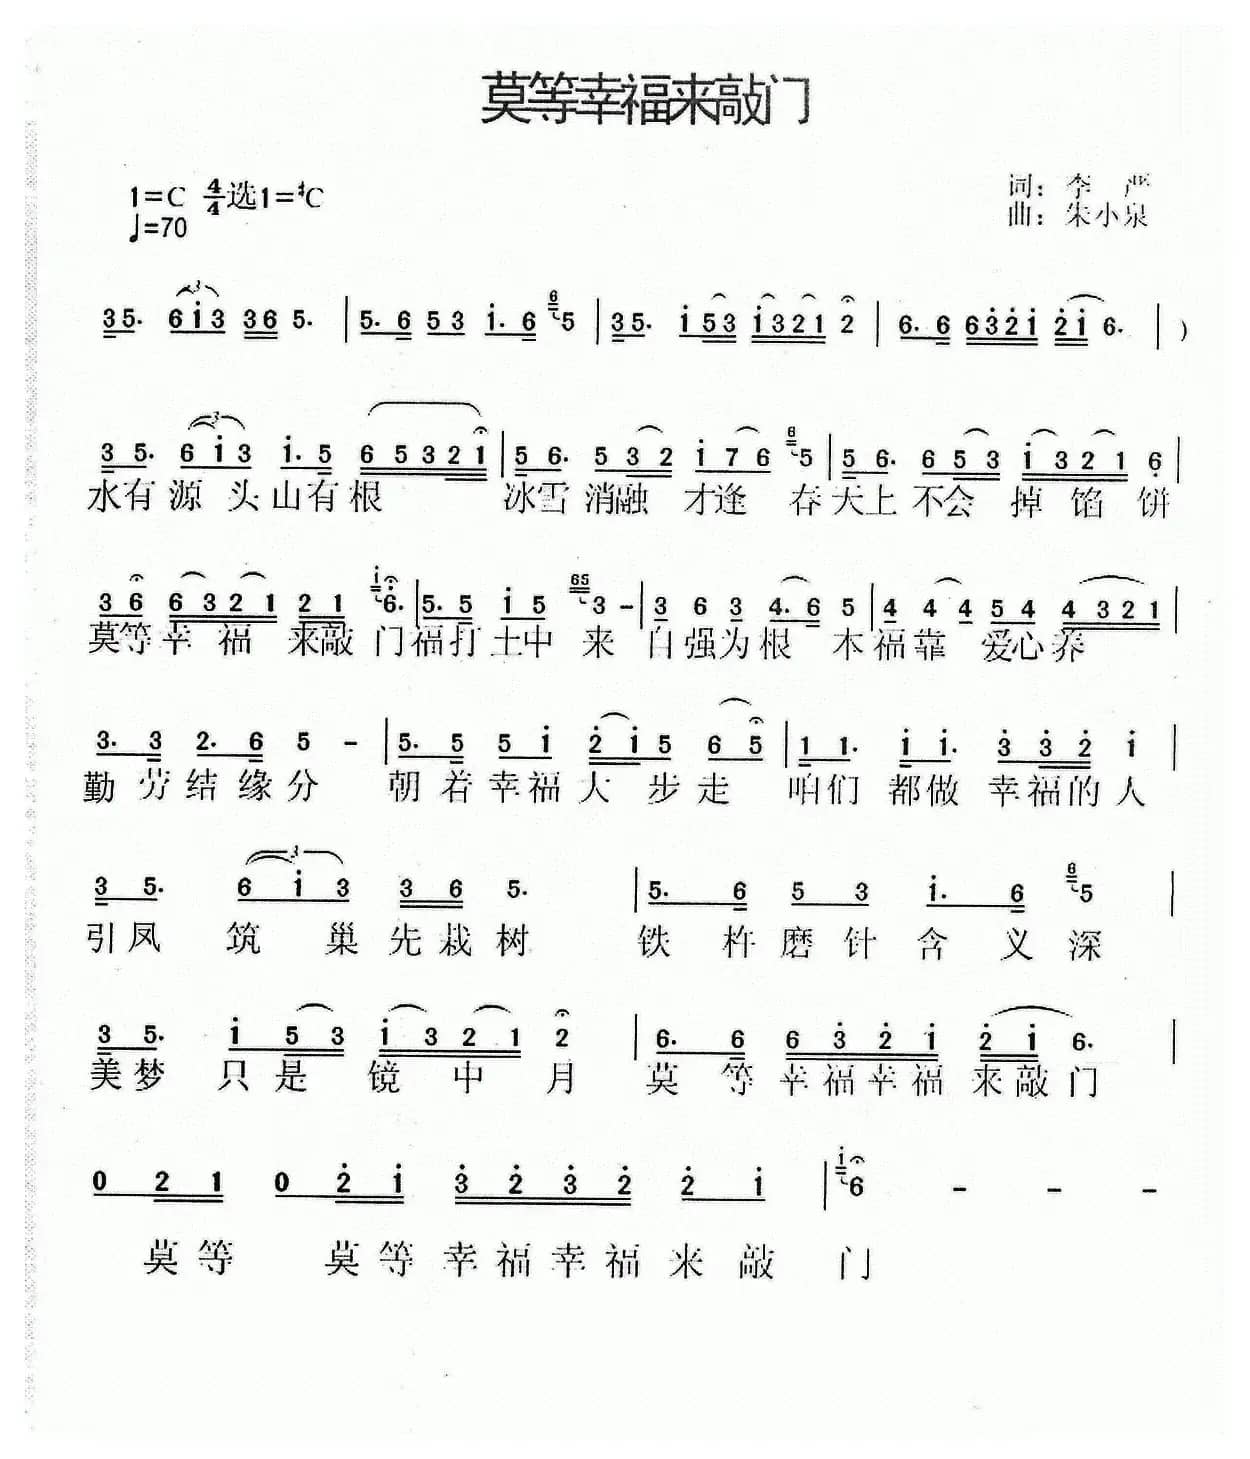 莫等幸福来敲门
1=C 4/4 选1=#C
♩=70
词：李 严
曲：朱小泉
35. 6i3 36 5. | 5. 6 53 i. 6 6 5 | 35. i53 i321 2 | 6. 6 632i 2i 6. | )
3 5. 6 i 3 i. 5 6 5 3 2 1 | 5 6. 5 3 2 i 7 6 6 5 | 5 6. 6 5 3 i 3 2 1 6 |
水有 源 头山有根 冰雪 消融 才逢 春天上 不会 掉 馅 饼
3 6 6 3 2 1 2 1 i 6. | 5. 5 i 5 65 3 – | 3 6 3 4. 6 5 | 4 4 4 5 4 4 3 2 1 |
莫等 幸 福 来敲 门福打 土中 来 自强为根 本福靠 爱心养
3. 3 2. 6 5 – | 5. 5 5 i 2 i 5 6 5 | 1 1. i i. 3 3 2 i |
勤 劳 结 缘 分 朝 着 幸 福 大 步 走 咱们 都做 幸 福的 人
3 5. 6 i 3 3 6 5. | 5. 6 5 3 i. 6 6 5 |
引凤 筑 巢 先 栽 树 铁 杵 磨 针 含 义 深
3 5. i 5 3 i 3 2 1 2 | 6. 6 6 3 2 i 2 i 6. |
美梦 只 是 镜 中 月 莫 等 幸 福 幸 福 来 敲门
0 2 1 0 2 i 3 2 3 2 2 i | i 6 – – –
莫 等 莫 等 幸 福 幸 福 来 敲 门